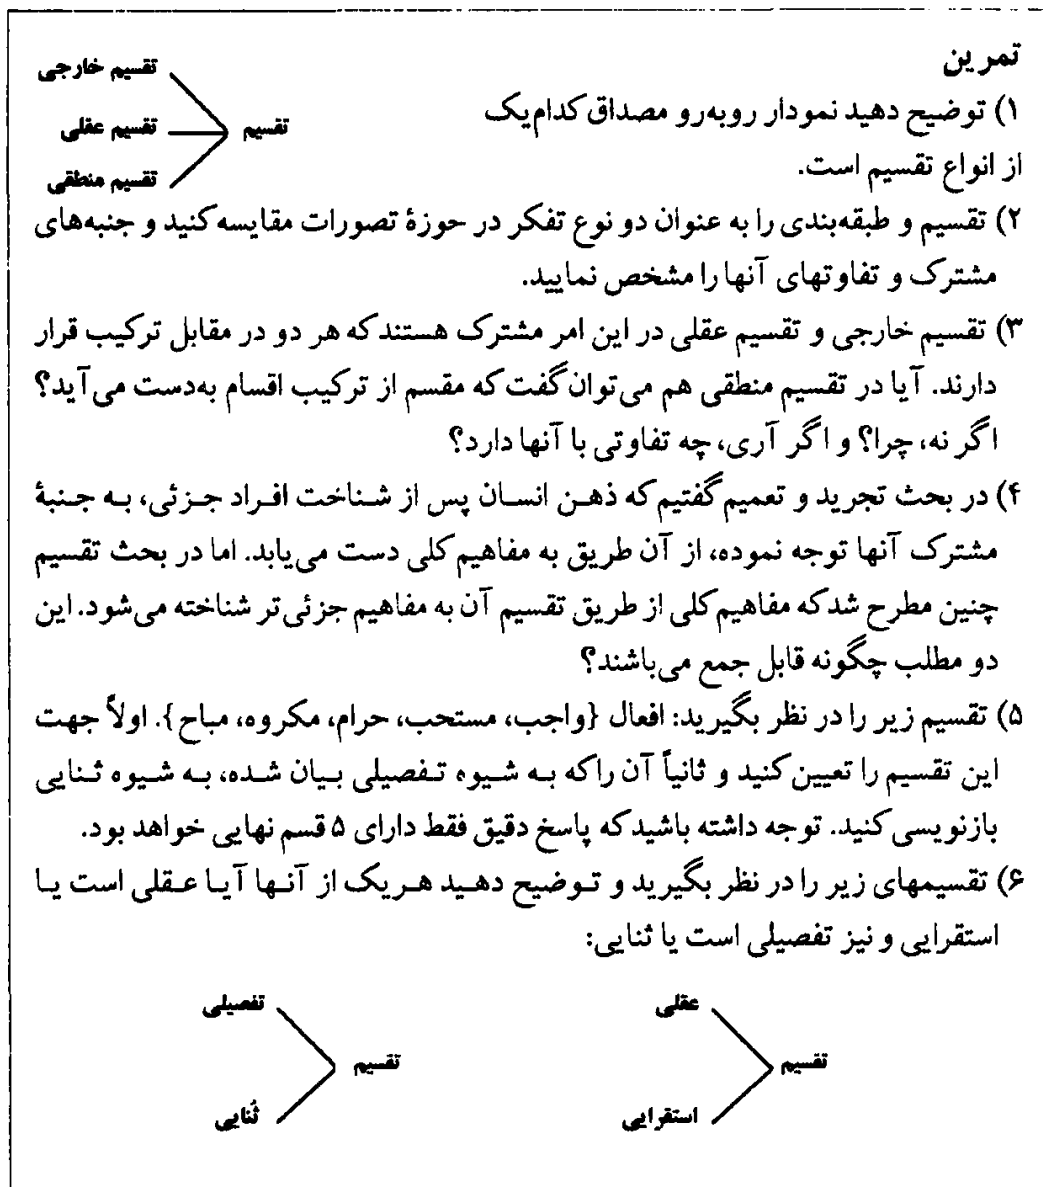 تمرین
۱) توضیح دهید نمودار روبه‌رو مصداق کدام‌یک
از انواع تقسیم است.
تقسیم
تقسیم خارجی
تقسیم عقلی
تقسیم منطقی
۲) تقسیم و طبقه‌بندی را به عنوان دو نوع تفکر در حوزهٔ تصورات مقایسه کنید و جنبه‌های
مشترک و تفاوتهای آنها را مشخص نمایید.
۳) تقسیم خارجی و تقسیم عقلی در این امر مشترک هستند که هر دو در مقابل ترکیب قرار
دارند. آیا در تقسیم منطقی هم می‌توان گفت که مقسم از ترکیب اقسام به‌دست می‌آید؟
اگر نه، چرا؟ و اگر آری، چه تفاوتی با آنها دارد؟
۴) در بحث تجرید و تعمیم گفتیم که ذهن انسان پس از شناخت افراد جزئی، به جنبهٔ
مشترک آنها توجه نموده، از آن طریق به مفاهیم کلی دست می‌یابد. اما در بحث تقسیم
چنین مطرح شد که مفاهیم کلی از طریق تقسیم آن به مفاهیم جزئی‌تر شناخته می‌شود. این
دو مطلب چگونه قابل جمع می‌باشند؟
۵) تقسیم زیر را در نظر بگیرید: افعال {واجب، مستحب، حرام، مکروه، مباح}. اولاً جهت
این تقسیم را تعیین کنید و ثانیاً آن را که به شیوه تفصیلی بیان شده، به شیوه ثنایی
بازنویسی کنید. توجه داشته باشید که پاسخ دقیق فقط دارای ۵ قسم نهایی خواهد بود.
۶) تقسیمهای زیر را در نظر بگیرید و توضیح دهید هریک از آنها آیا عقلی است یا
استقرایی و نیز تفصیلی است یا ثنایی:
تقسیم
عقلی
استقرایی
تقسیم
تفصیلی
ثُنایی